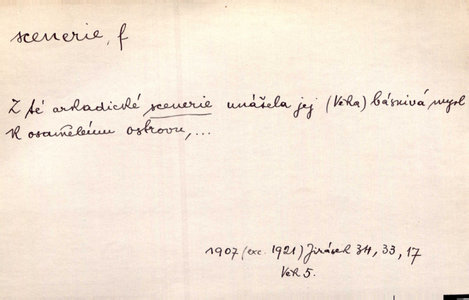 scenerie, f
Z té arkadické scenerie unášela jej (Věka) básnivá mysl
k osamělému ostrovu, ...
1907 (exc. 1921) Jirásek 34, 33, 17
Věk 5.